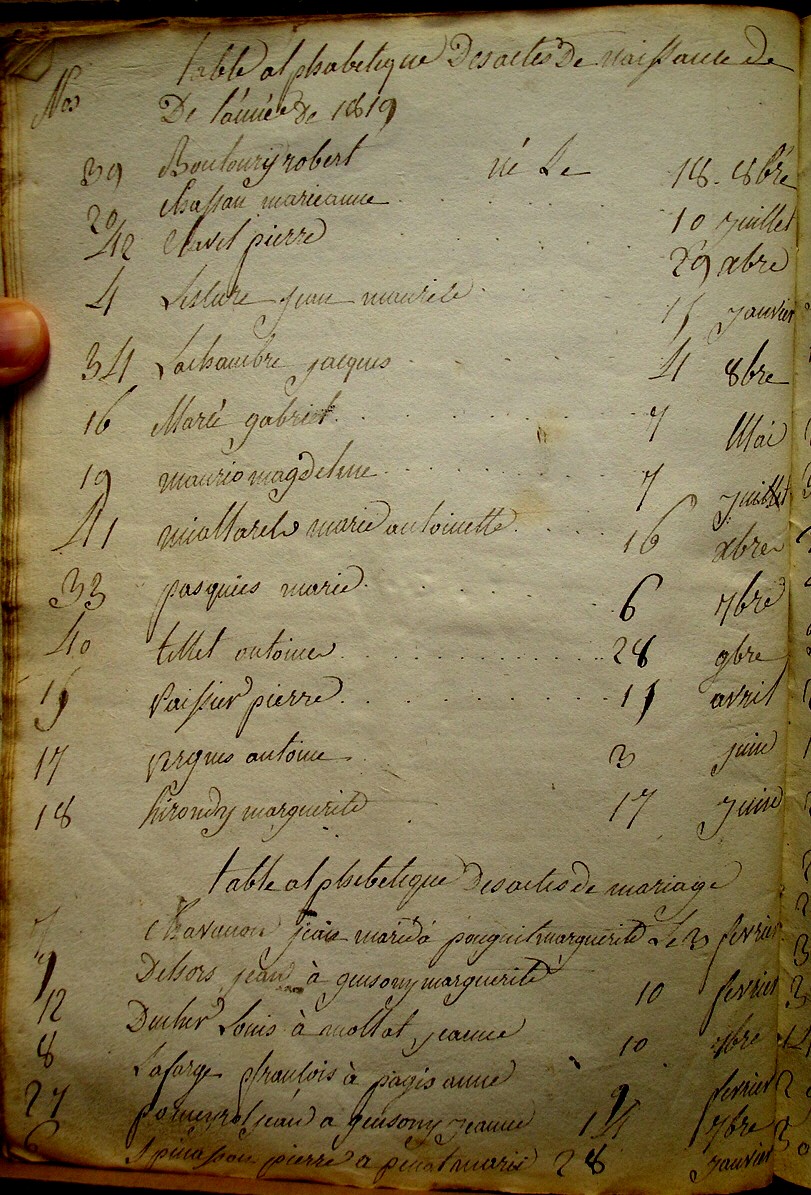 table alphabetique Des actes De naissance de
Nos De l'année de 1819
39 robert né Le 18 8bre
20 Chassan marieanne 10 Juillet
42 Clavel pierre 29 xbre
4 jean 15 Janvier
34 Lachambre jacques 4 8bre
16 Marie gabriel 7 Mai
19 maurio magdelene 7 Juillet
41 marie antoinette 16 xbre
33 pasquies marie 6 7bre
40 tillet antoine 28 9bre
15 Vaissier pierre 15 avril
17 antoine 3 juin
18 marguerite 17 Juin
table alphebetique Des actes de mariage
7 Chavanon jean marié à marguerite Le 3 fevrier
9 Delsors jean à gensony marguerite 10 fevrier
12 Louis à mollat jeanne 10 xbre
8 Lafarge franlois à pagis anne 9 fevrier
27 pomeyrol jean a gensony jeanne 14 7bre
6 Spinasson pierre a marie 28 Janvier